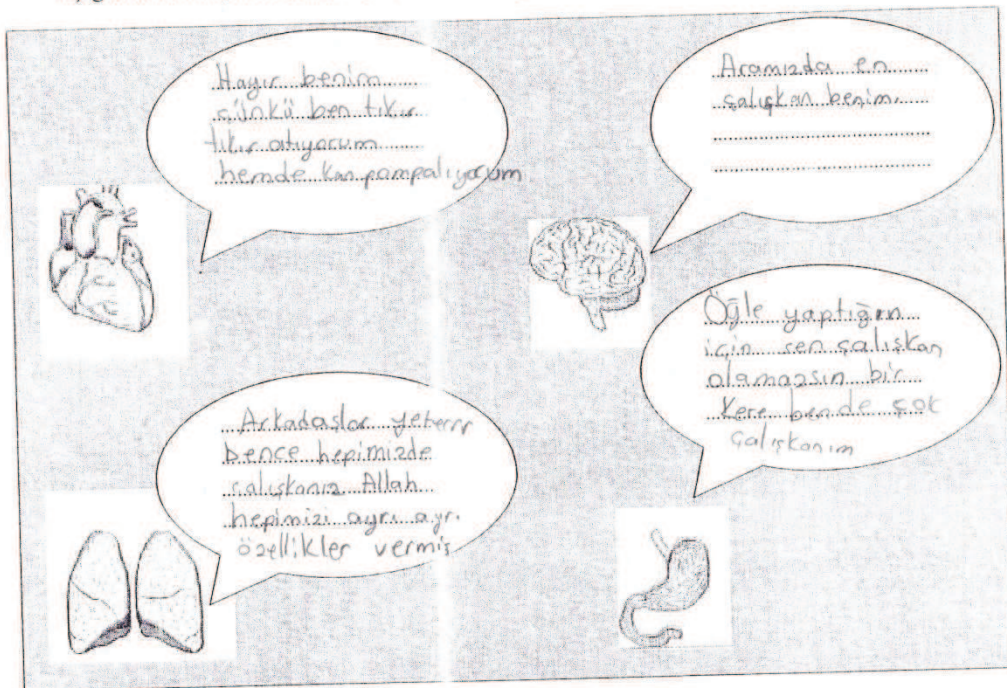 Hayır benim
çünkü ben tıkır
tıkır atıyorum
hemde kan pompalıyorum
Aramızda en
çalışkan benim.
Öğle yaptığın
için sen çalışkan
olamazsın bir
kere bende çok
çalışkanım
Arkadaşlar yeterrr
bence hepimizde
çalışkanız Allah
hepimizi ayrı ayrı
özellikler vermiş